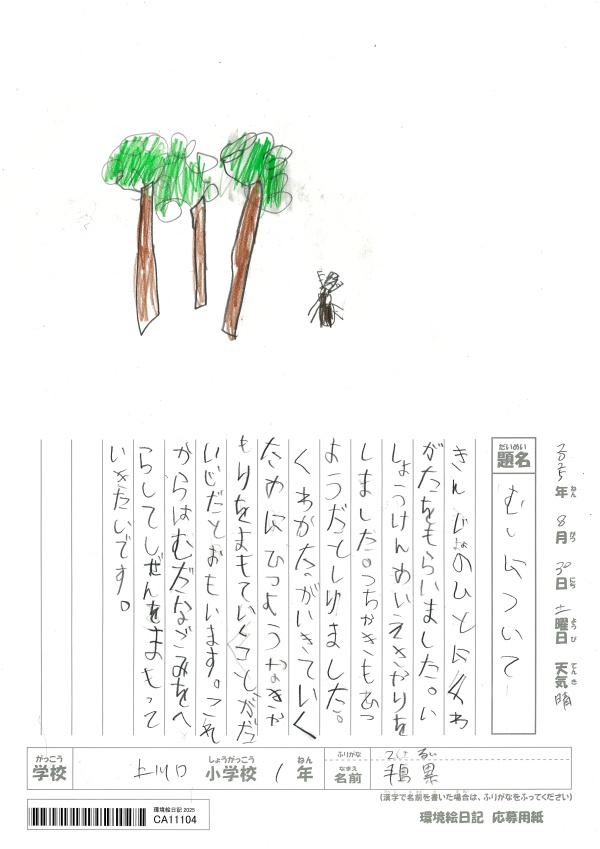 2025年 8月 30日 土曜日 天気 晴
ねん がつ にち ようび てんき
だいめい
題名
むしについて
きんじょのひとにくわ
がたをもらいました。い
しょうけんめいえさかりを
しました。つちかきもあっ
ようだとしりました。
くわがたがいきていく
ためにひつようなきか
もりをまもていくことがだ
いじだとおもいます。これ
からはむだなごみをへ
らしてしぜんをまもって
いきたいです。
がっこう
学校
上川口
しょうがっこう
小学校
1
ねん
年
ふりがな
なまえ
名前
てしま るい
手島 累
(漢字で名前を書いた場合は、ふりがなをふってください)
環境絵日記 2025
CA11104
環境絵日記 応募用紙